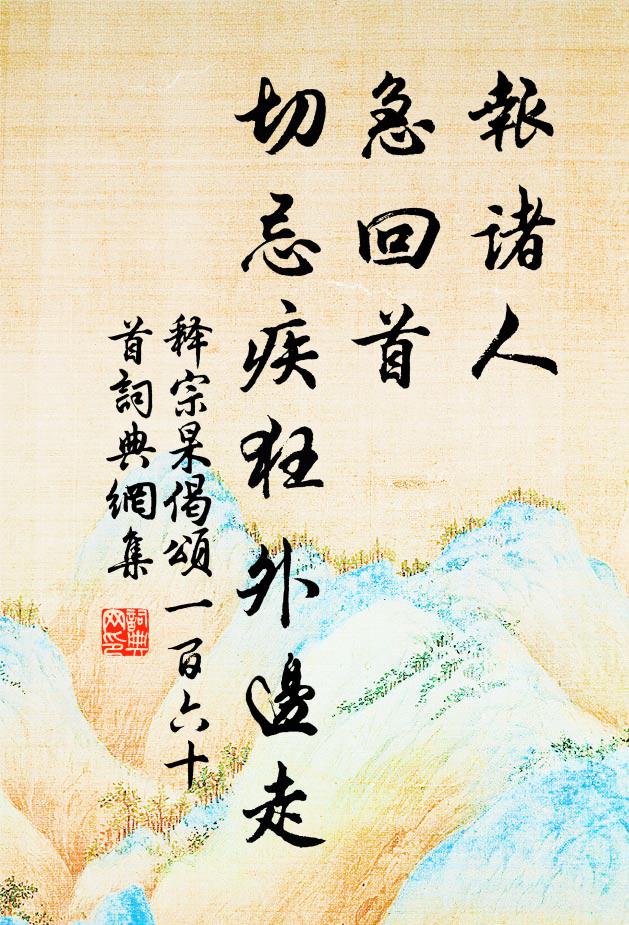 報諸人
急回首
切忌疾狂外邊走
释宗杲偈頌一百六十
首詞典網集
詞典
网印